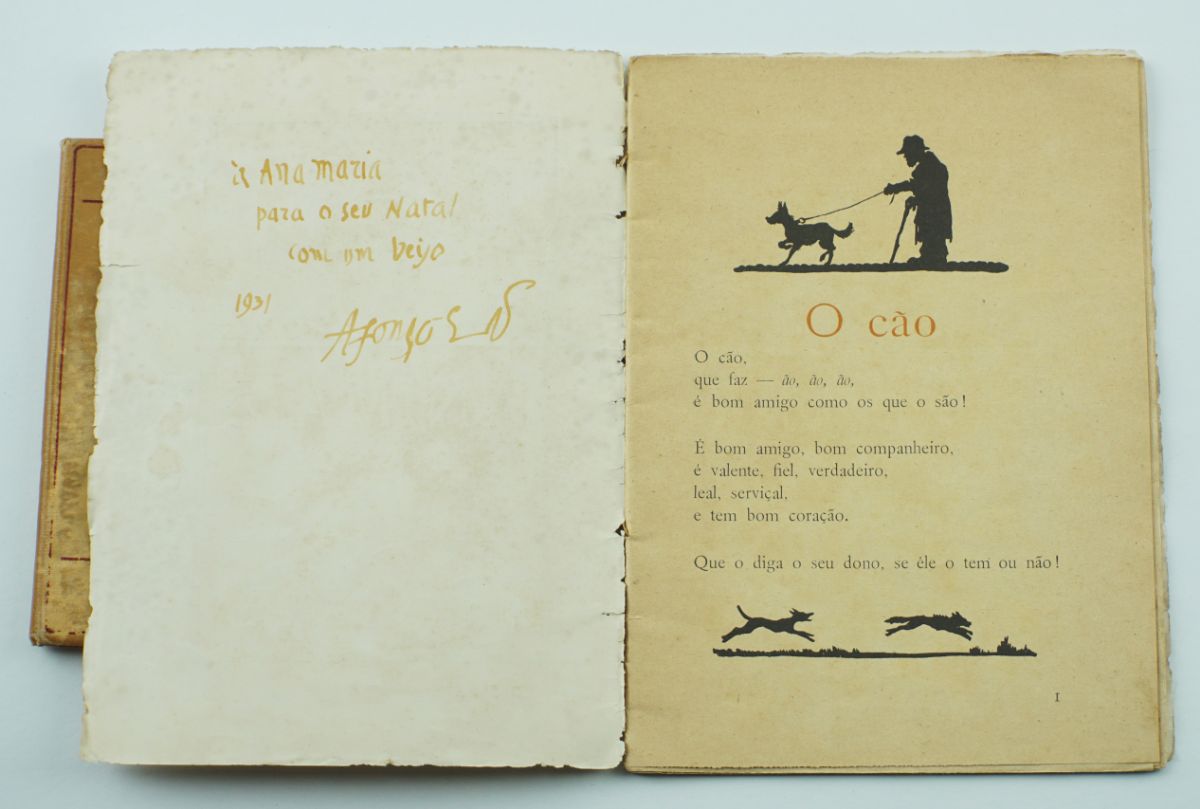 à Ana Maria
para o seu Natal
com um beijo
1931
O cão
O cão,
que faz — ão, ão, ão,
é bom amigo como os que o são!
É bom amigo, bom companheiro,
é valente, fiel, verdadeiro,
leal, serviçal,
e tem bom coração.
Que o diga o seu dono, se êle o tem ou não!
1